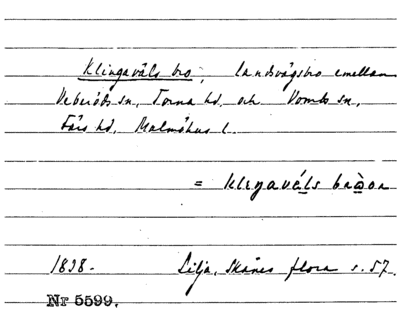 Klingaväls bro, landsvägsbro emellan
Veberöds sn, Torna hd. och Vombs sn,
Färs hd, Malmöhus l.
= kleŋaváls
1838. Lilja, Skånes flora s. 57.
Nr 5599.